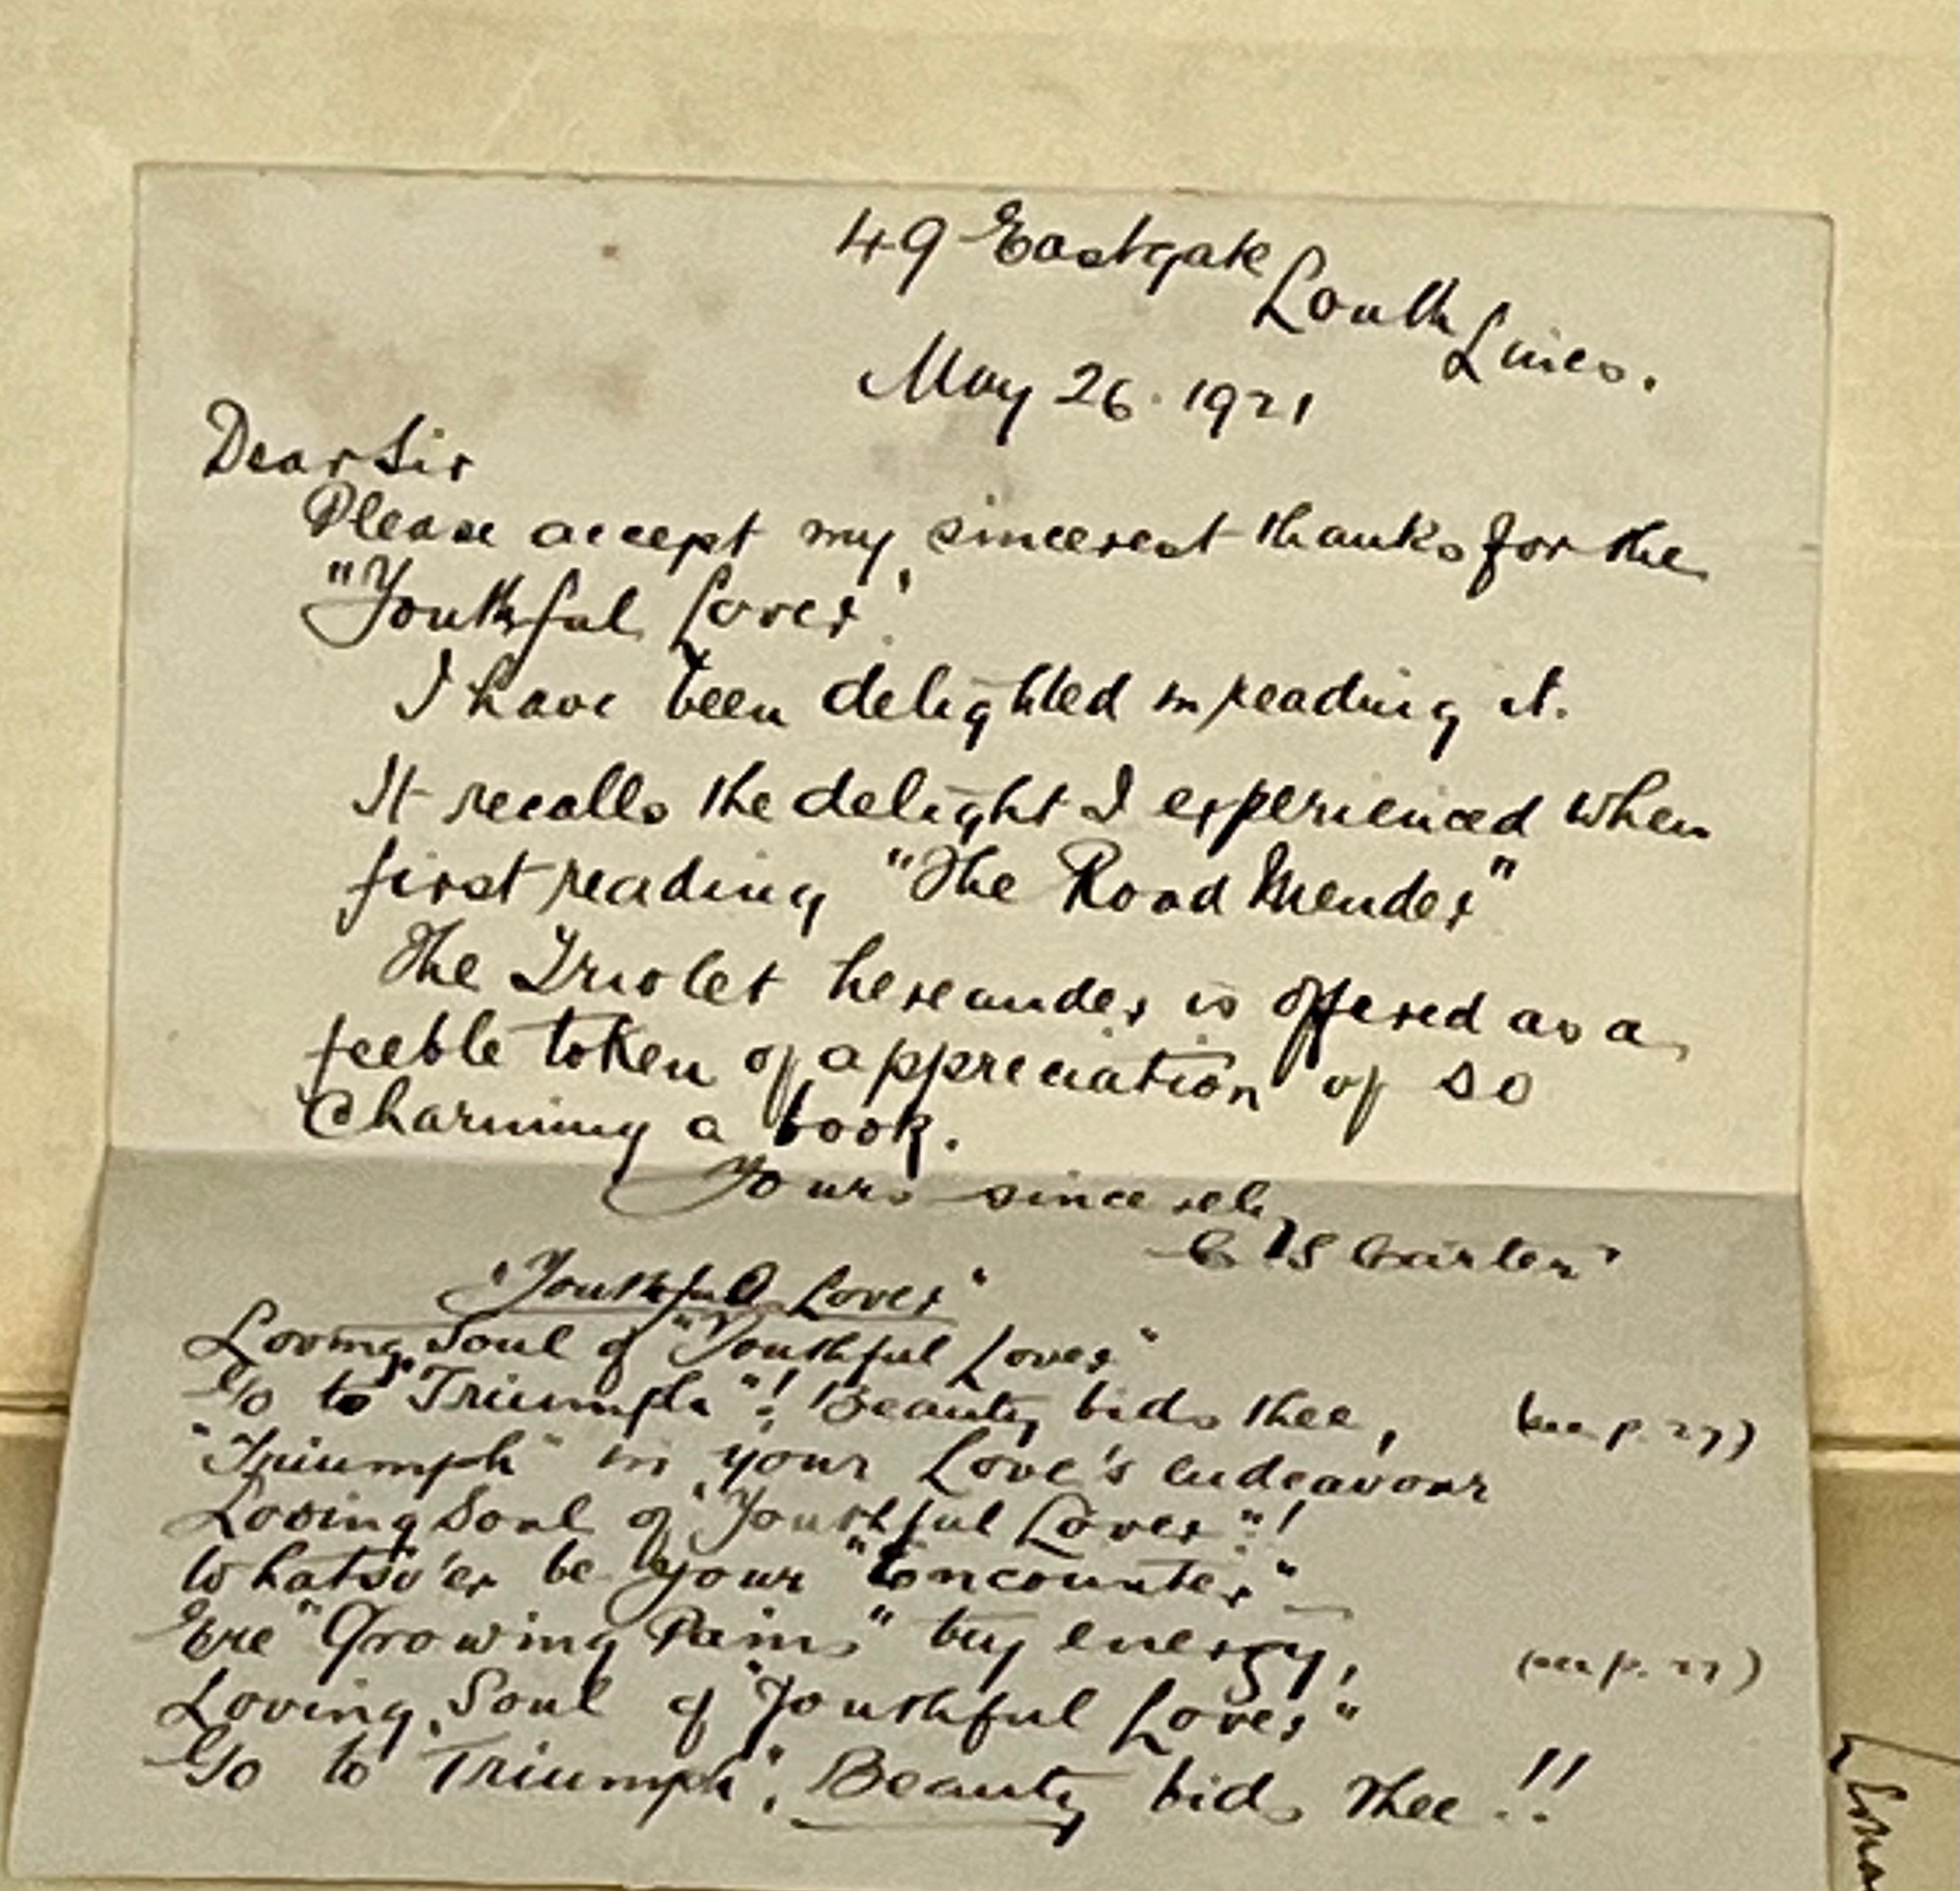 49 Eastgate Louth Lincs.
May 26. 1921
Dear Sir
Please accept my sincerest thanks for the
"Youthful Lover".
I have been delighted in reading it.
It recalls the delight I experienced when
first reading "The Road Mender"
The Triolet hereunder is offered as a
feeble token of appreciation of so
charming a book.
Yours sincerely
"Youthful Lover"
Loving Soul of "Youthful Lover"
Go to "Triumph"! Beauty bids thee, (see p. 27)
"Triumph" in your Love's endeavour
Loving Soul of "Youthful Lover"!
Whatso'er be your "Encounter"
Ere "Growing Pains" try energy, (see p. 27)
Loving Soul of "Youthful Lover"
Go to "Triumph", Beauty bids thee!!